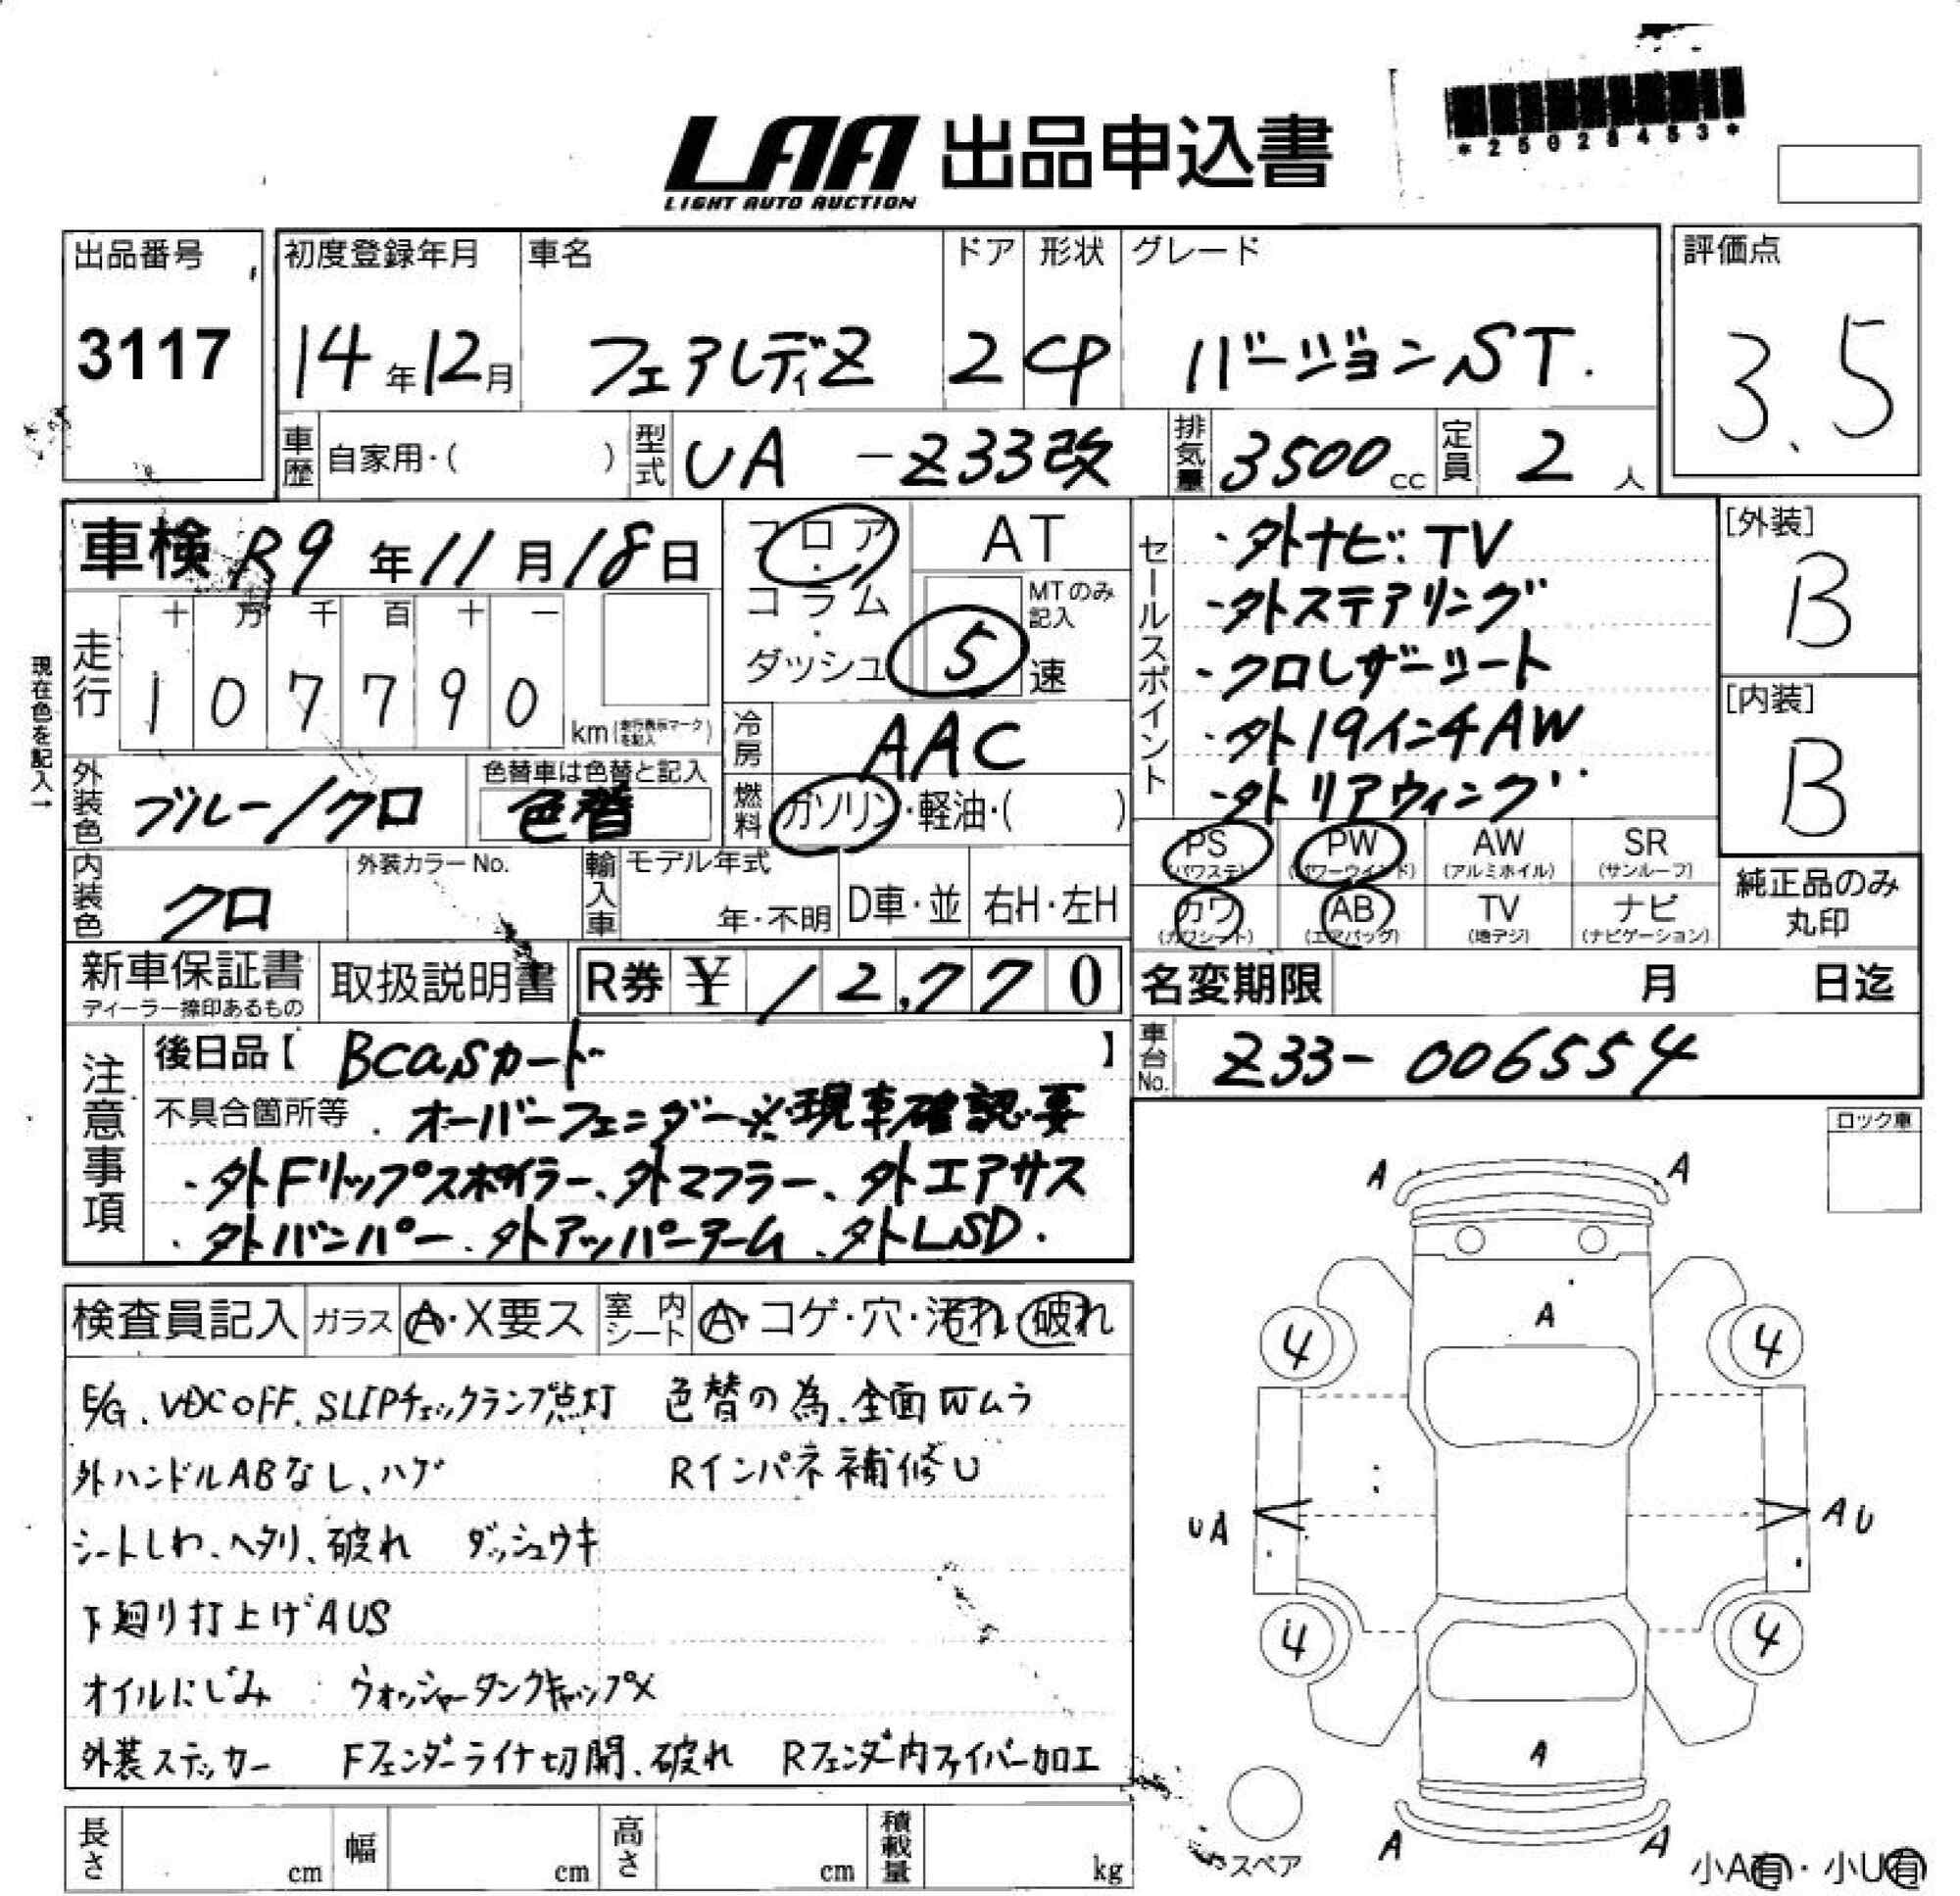 *25028453*
LAA 出品申込書
LIGHT AUTO AUCTION
出品番号
3117
初度登録年月
14年12月
車名
フェアレディZ
ドア
2
形状
CP
グレード
バージョンST.
評価点
3.5
車歴 自家用・( )
型式 UA -Z33改
排気量 3500cc
定員 2人
車検 R9年11月18日
フロア・コラム・ダッシュ
AT
MTのみ記入
5速
走行
十 万 千 百 十 一
1 0 7 7 9 0 km(走行表示マークを記入)
現在色を記入→
外装色 ブルー/クロ
色替車は色替と記入
色替
冷房 AAC
燃料 ガソリン・軽油・( )
内装色 クロ
外装カラーNo.
輸入車 モデル年式
年・不明
D車・並 右H・左H
セールスポイント
・外ナビ.TV
・外ステアリング
・クロレザーシート
・外19インチAW
・外リアウィング
[外装]
B
[内装]
B
PS (パワステ) PW (パワーウインド) AW (アルミホイル) SR (サンルーフ)
カワ (カワシート) AB (エアバッグ) TV (地デジ) ナビ (ナビゲーション)
純正品のみ
丸印
新車保証書
ディーラー捺印あるもの
取扱説明書
R券 ¥ 12,770
名変期限 月 日迄
車台No. Z33-006554
注意事項
後日品【 Bcasカード 】
不具合箇所等 ・オーバーフェンダー※現車確認要
・外Fリップスポイラー、外マフラー、外エアサス
・外バンパー、外アッパーアーム、外LSD.
ロック車
検査員記入 ガラス A・X要ス 室内シート A・コゲ・穴・汚れ・破れ
E/G、VDCOFF、SLIPチェックランプ点灯 色替の為、全面Wムラ
外ハンドルABなし、ハゲ Rインパネ補修U
シートしわ、ヘタリ、破れ ダッシュウキ
下廻り打上げAUS
オイルにじみ ウォッシャータンクキャップX
外装ステッカー Fフェンダーライナ切開、破れ Rフェンダー内ファイバー加工
長さ cm 幅 cm 高さ cm 積載量 kg
A A
A
4 4
UA AU
4 4
A
A A
スペア
小A有・小U有